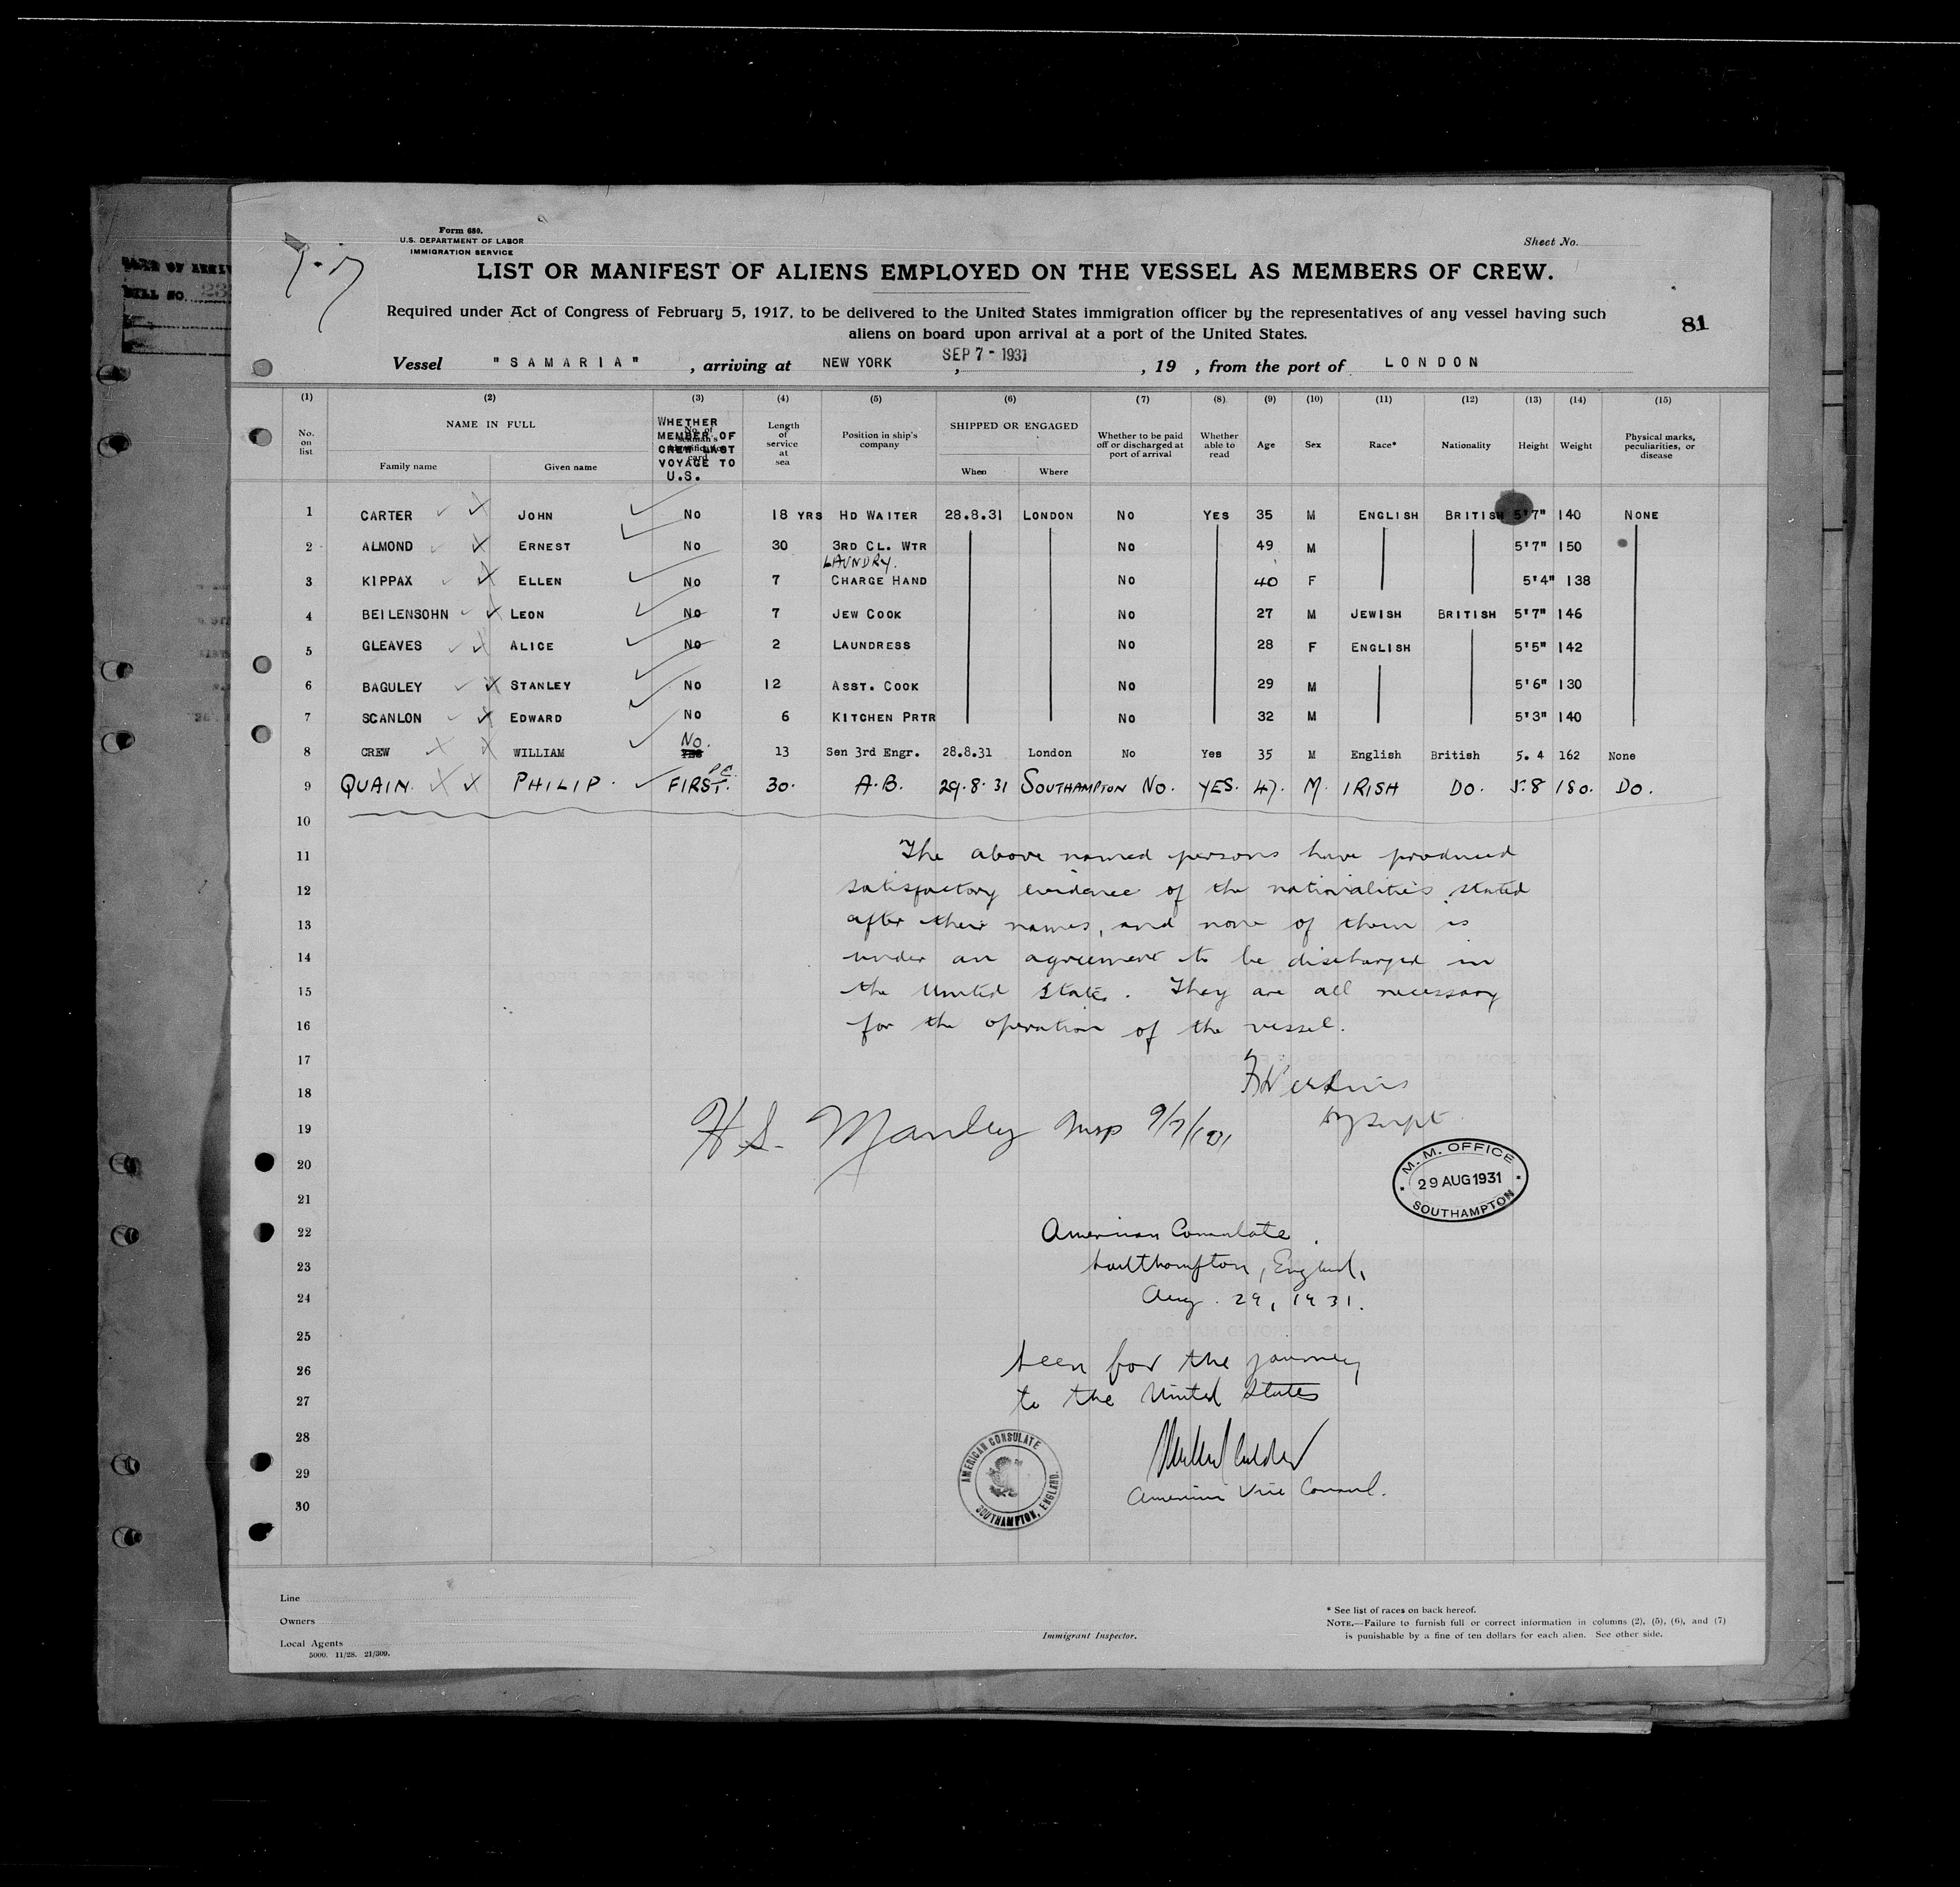 Form 680.
U.S. DEPARTMENT OF LABOR
IMMIGRATION SERVICE
Sheet No.
LIST OR MANIFEST OF ALIENS EMPLOYED ON THE VESSEL AS MEMBERS OF CREW.
Required under Act of Congress of February 5, 1917, to be delivered to the United States immigration officer by the representatives of any vessel having such
aliens on board upon arrival at a port of the United States.
81
Vessel "SAMARIA", arriving at NEW YORK, SEP 7 - 1931, 19 , from the port of LONDON
BILL NO.
(1) (2) (3) (4) (5) (6) (7) (8) (9) (10) (11) (12) (13) (14) (15)
No. on list
NAME IN FULL
Family name Given name
WHETHER MEMBER OF CREW LAST VOYAGE TO U.S.
Length of service at sea
Position in ship's company
SHIPPED OR ENGAGED
When Where
Whether to be paid off or discharged at port of arrival
Whether able to read
Age
Sex
Race*
Nationality
Height
Weight
Physical marks, peculiarities, or disease
1 CARTER JOHN NO 18 YRS HD WAITER 28.8.31 LONDON NO YES 35 M ENGLISH BRITISH 5'7" 140 NONE
2 ALMOND ERNEST NO 30 3RD CL. WTR NO 49 M 5'7" 150
LAUNDRY.
3 KIPPAX ELLEN NO 7 CHARGE HAND NO 40 F 5'4" 138
4 BEILENSOHN LEON NO 7 JEW COOK NO 27 M JEWISH BRITISH 5'7" 146
5 GLEAVES ALICE NO 2 LAUNDRESS NO 28 F ENGLISH 5'5" 142
6 BAGULEY STANLEY NO 12 ASST. COOK NO 29 M 5'6" 130
7 SCANLON EDWARD NO 6 KITCHEN PRTR NO 32 M 5'3" 140
8 CREW WILLIAM No. 13 Sen 3rd Engr. 28.8.31 London No Yes 35 M English British 5. 4 162 None
9 QUAIN. PHILIP. FIRST. 30. A.B. 29.8.31 SOUTHAMPTON NO. YES. 47. M. IRISH DO. 5.8 180. DO.
10
11 The above named persons have produced
12 satisfactory evidence of the nationalities stated
13 after their names, and none of them is
14 under an agreement to be discharged in
15 the United States. They are all necessary
16 for the operation of the vessel.
17
18
19 H.S. Manley Insp
20
M. M. OFFICE
29 AUG 1931
SOUTHAMPTON
21
22 American Consulate
23 Southampton, England,
24 Aug. 29, 1931.
25
26 Seen for the journey
27 to the United States
28
29 American Vice Consul.
30
AMERICAN CONSULATE
SOUTHAMPTON, ENGLAND.
Line
Owners
Local Agents
5000. 11/28. 21/309.
Immigrant Inspector.
* See list of races on back hereof.
NOTE.—Failure to furnish full or correct information in columns (2), (5), (6), and (7)
is punishable by a fine of ten dollars for each alien. See other side.